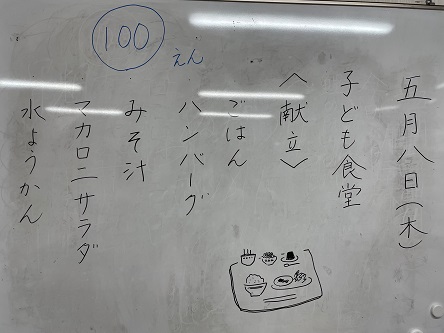 五月八日(木)
子ども食堂
〈献立〉
ごはん
ハンバーグ
みそ汁
マカロニサラダ
水ようかん
100
えん